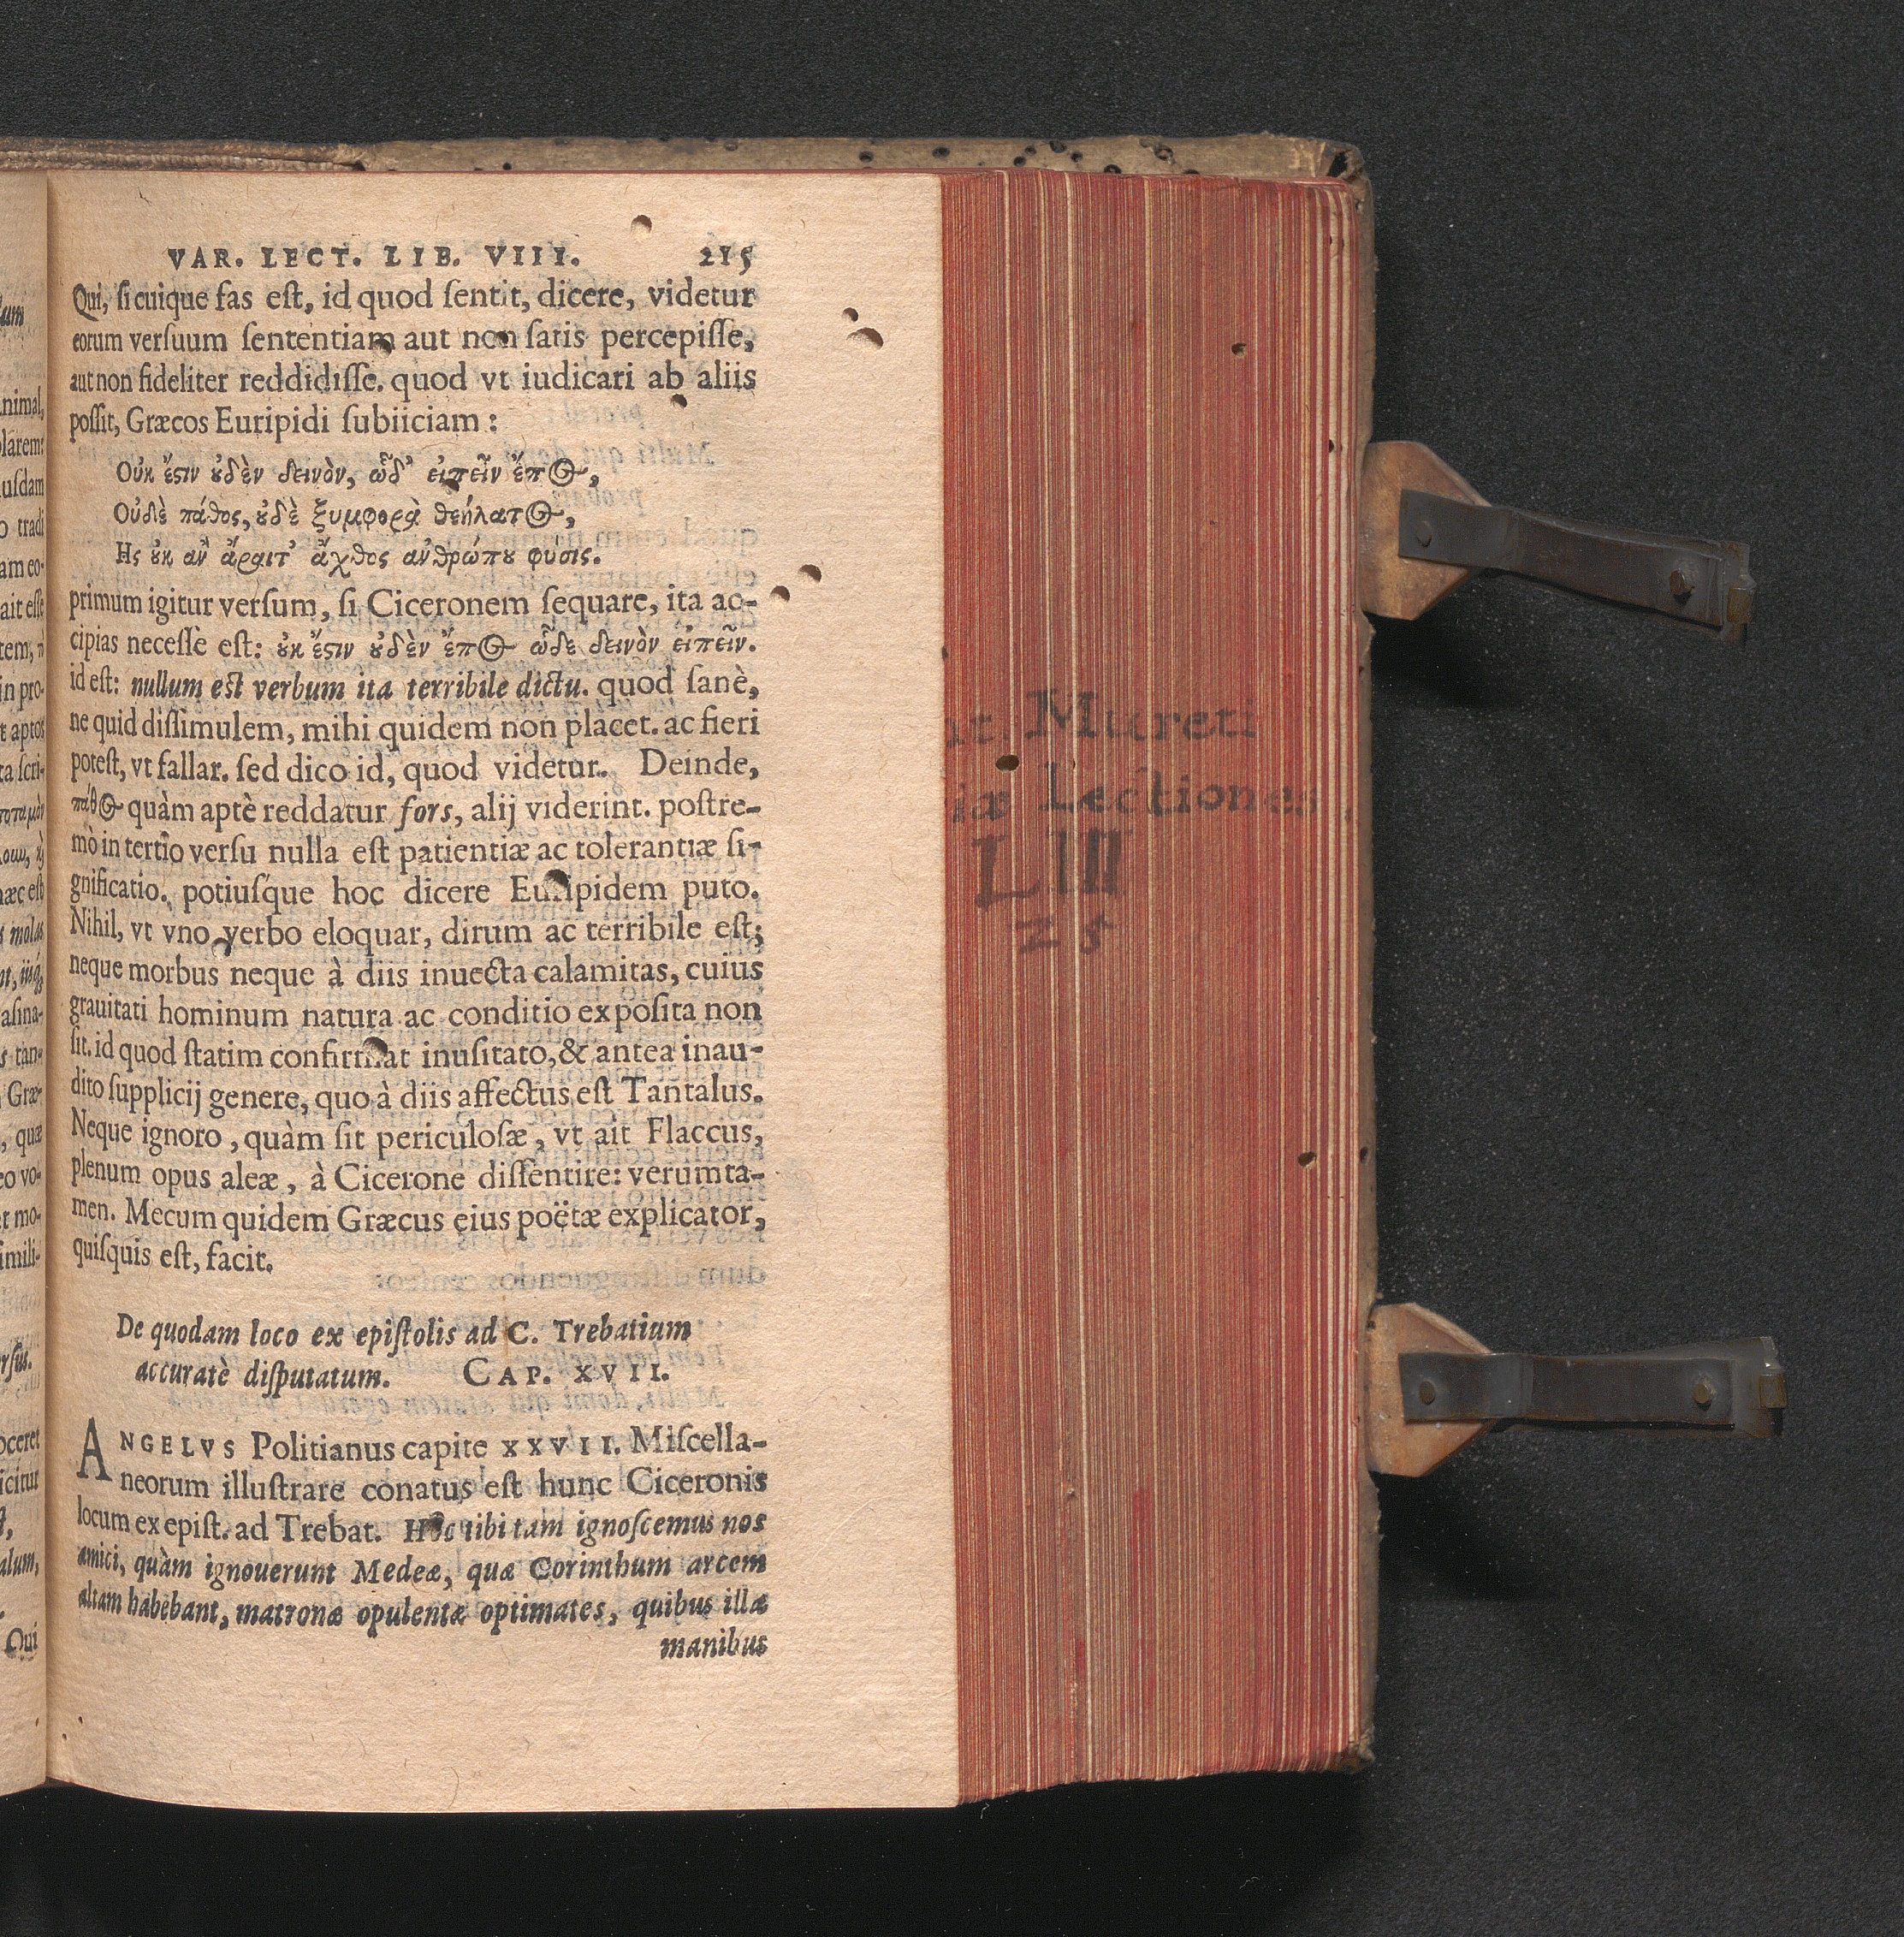 VAR. LECT. LIB. VIII. 215
Qui, ſi cuique fas eſt, id quod ſentit, dicere, videtur
eorum verſuum ſententiam aut non ſatis percepiſſe,
aut non fideliter reddidiſſe. quod vt iudicari ab aliis
poſſit, Græcos Euripidi ſubiiciam:
Οὐκ ἔϛιν ȣ̓δὲν δεινὸν, ὧδ᾽ εἰπεῖν ἔπος,
Οὐδὲ πάθος, ȣ̓δὲ ξυμφορὰ θεήλατος,
Ης ȣ̓κ ἂν ἄραιτ᾽ ἄχθος ανθρώπȣ φύσις.
primum igitur verſum, ſi Ciceronem ſequare, ita ac-
cipias neceſſe eſt: ȣ̓κ ἔϛιν ȣ̓δὲν ἔπος ὧδε δεινὸν εἰπεῖν.
id eſt: nullum eſt verbum ita terribile dictu. quod ſanè,
ne quid diſſimulem, mihi quidem non placet. ac fieri
poteſt, vt fallar. ſed dico id, quod videtur. Deinde,
πάθος quàm aptè reddatur fors, alij viderint. poſtre-
mò in tertio verſu nulla eſt patientiæ ac tolerantiæ ſi-
gnificatio. potiuſque hoc dicere Euripidem puto.
Nihil, vt vno verbo eloquar, dirum ac terribile eſt;
neque morbus neque à diis inuecta calamitas, cuius
grauitati hominum natura ac conditio expoſita non
ſit. id quod ſtatim confirmat inuſitato, & antea inau-
dito ſupplicij genere, quo à diis affectus eſt Tantalus.
Neque ignoro, quàm ſit periculoſæ, vt ait Flaccus,
plenum opus aleæ, à Cicerone diſſentire: verumta-
men. Mecum quidem Græcus eius poëtæ explicator,
quiſquis eſt, facit.
De quodam loco ex epiſtolis ad C. Trebatium
accuratè diſputatum. CAP. XVII.
ANGELVS Politianus capite XXVII. Miſcella-
neorum illuſtrare conatus eſt hunc Ciceronis
locum ex epiſt. ad Trebat. Hoc tibi tam ignoſcemus nos
amici, quàm ignouerunt Medeæ, quæ Corinthum arcem
altam habebant, matronæ opulentæ optimates, quibus illæ
manibus
Mureti
Lectiones
LIII
25